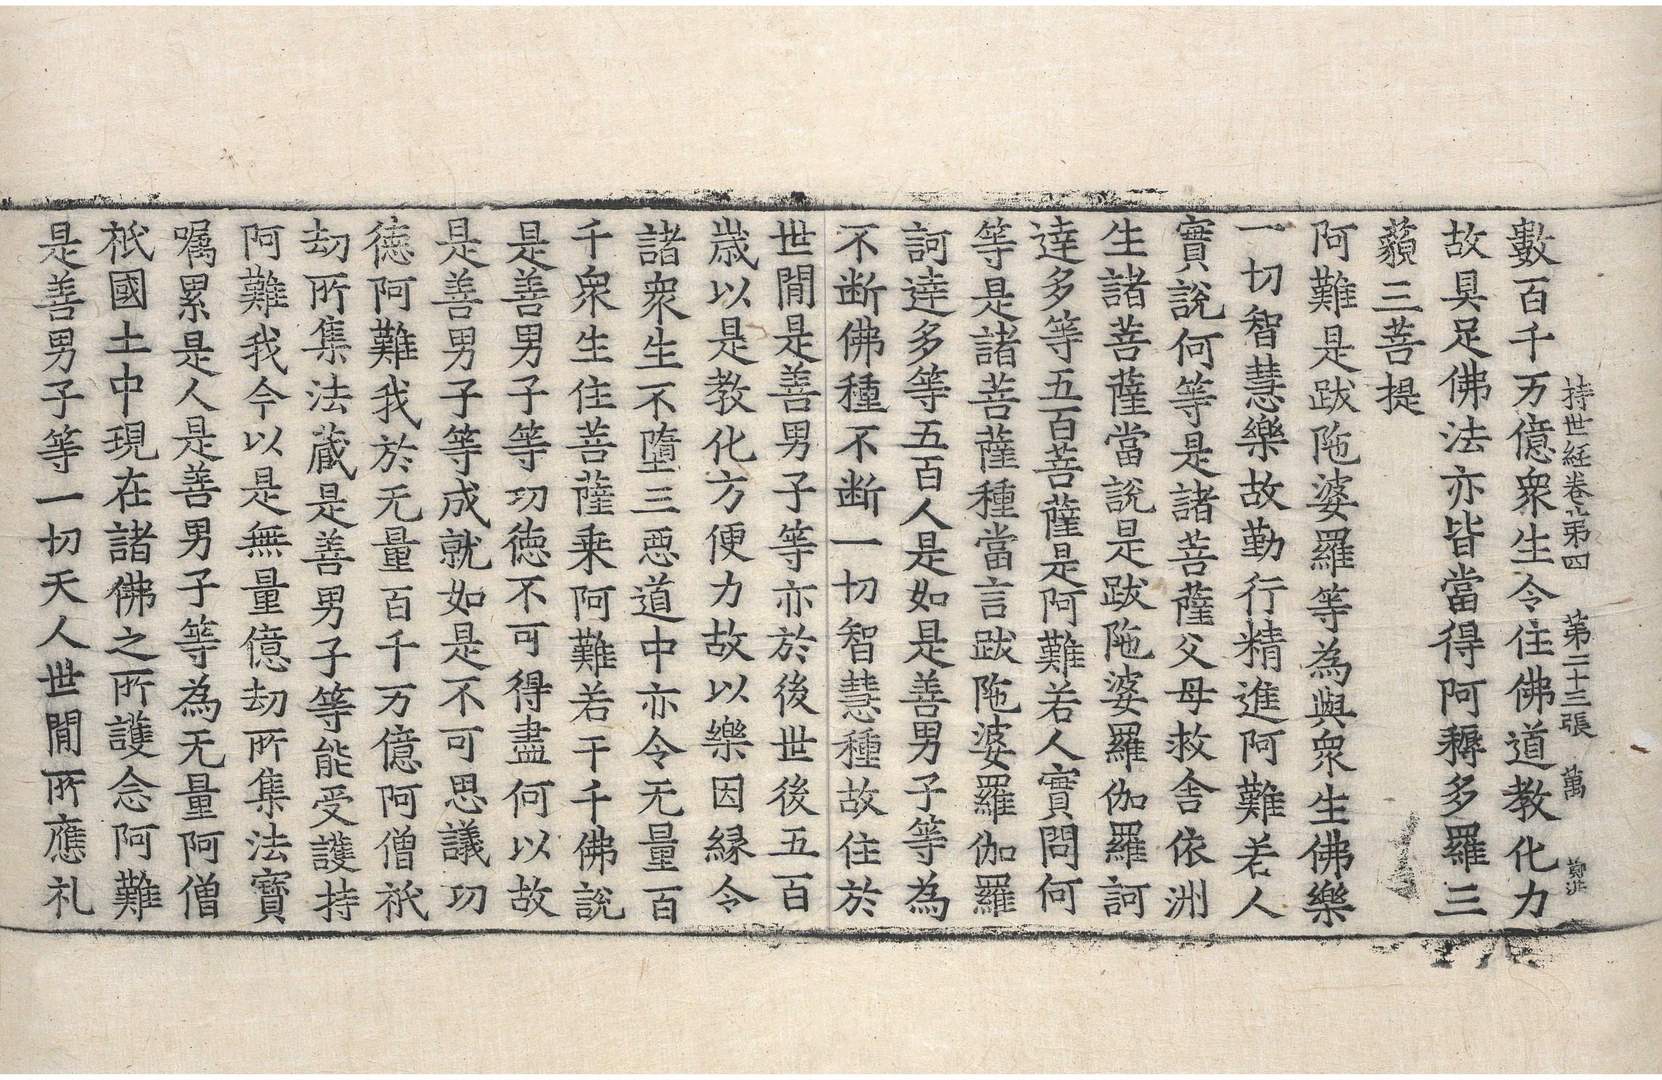 持世経卷第四 第二十三張 萬
數百千万億衆生令住佛道教化力
故具足佛法亦皆當得阿耨多羅三
藐三菩提
阿難是跋陁婆羅等為與衆生佛樂
一切智慧樂故勤行精進阿難若人
實說何等是諸菩薩父母救舍依洲
生諸菩薩當說是跋陁婆羅伽羅訶
達多等五百菩薩是阿難若人實問何
等是諸菩薩種當言跋陁婆羅伽羅
訶達多等五百人是如是善男子等為
不断佛種不断一切智慧種故住於
世閒是善男子等亦於後世後五百
歲以是教化方便力故以樂因縁令
諸衆生不墮三惡道中亦令无量百
千衆生住菩薩乘阿難若干千佛說
是善男子等㓛徳不可得盡何以故
是善男子等成就如是不可思議㓛
徳阿難我於无量百千万億阿僧祇
劫所集法蔵是善男子等能受護持
阿難我今以是無量億劫所集法寶
嘱累是人是善男子等為无量阿僧
祇國土中現在諸佛之所護念阿難
是善男子等一切天人世閒所應礼